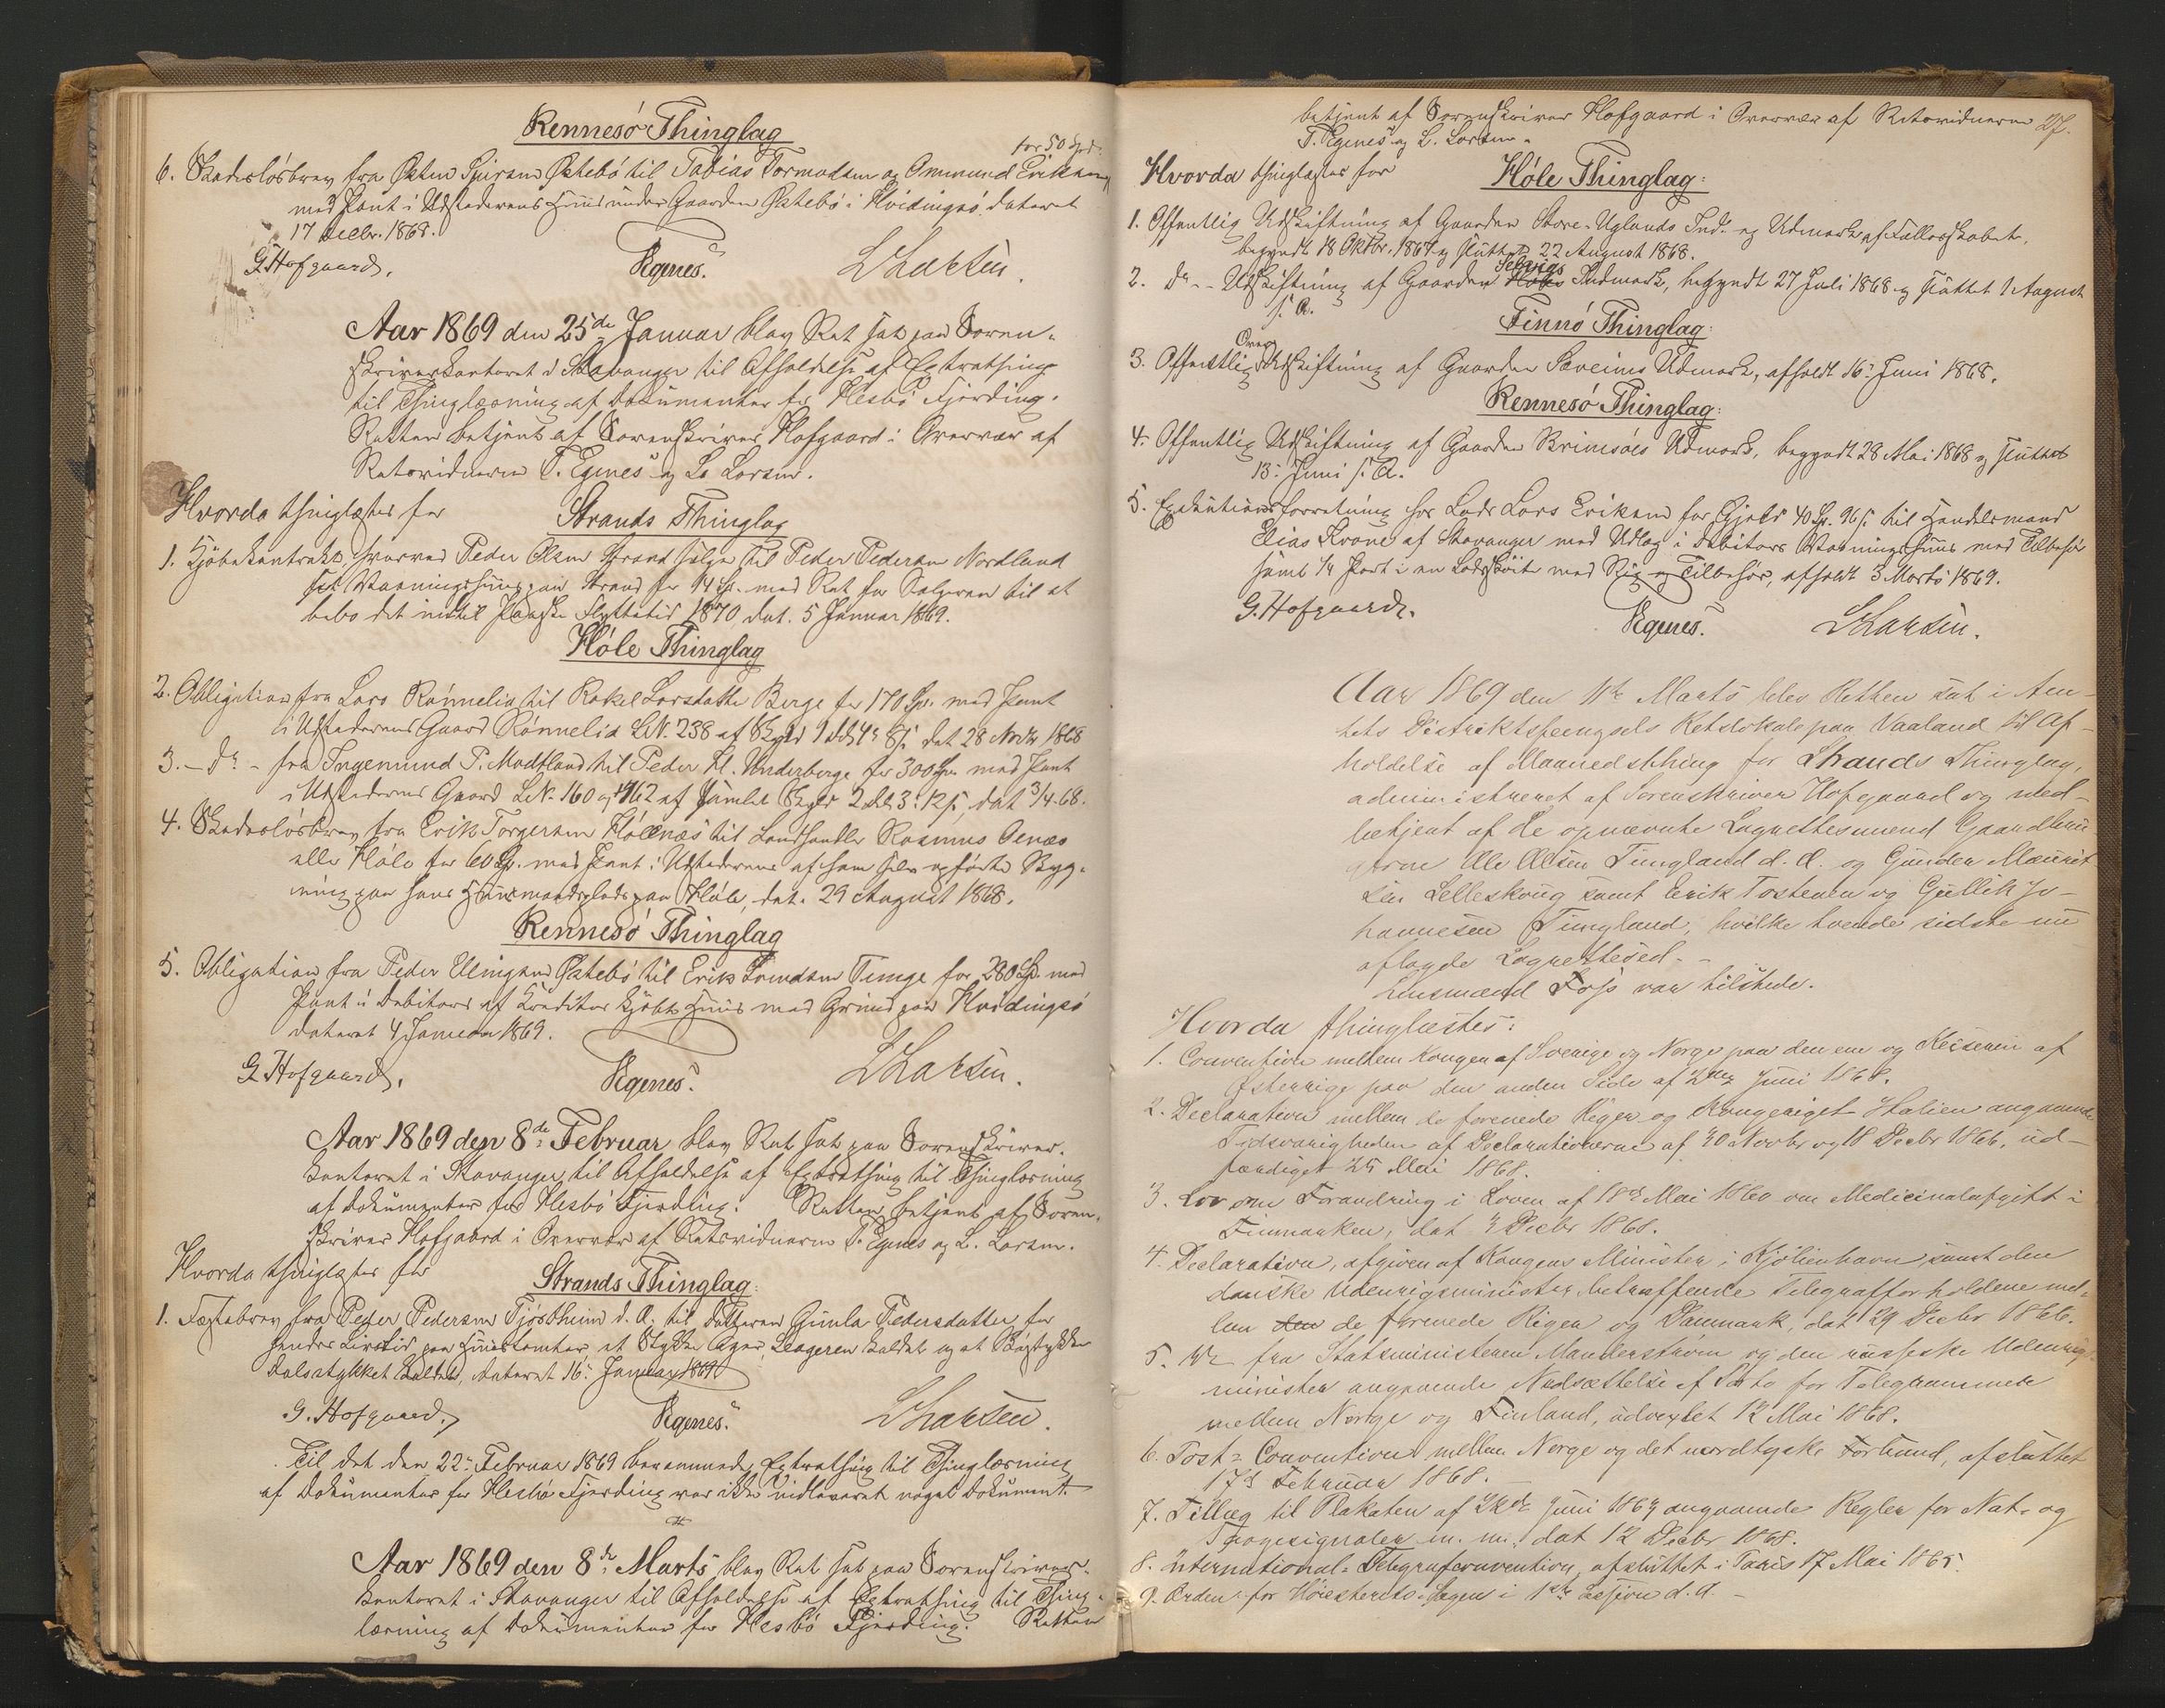 Rennesö Thinglag
for 50 Spd.
6. Skadesløsbrev fra Østen Østebö til Tobias Tormodsen og Ommund Eriksen
med Pant i Udstederens Huus under Gaarden Østebö i Hvidingsö dateret
17 Decbr. 1868.
G. Hofgaard. Egenes. L Larsen.
Aar 1869 den 25de Januar blev Ret sat paa Soren-
skriverkontoret i Stavanger til Afholdelse af Extrathing
til Thinglæsning af Dokumenter for Hesbö Fjerding.
Retten betjent af Sorenskriver Hofgaard i Overvær af
Retsvidnerne T. Egenes og L. Larsen.
Hvorda thinglæstes for Strands Thinglag
1. Kjöbekontrakt, hvorved Peder Olsen Strand sælger til Peder Pedersen Nordland
et Vaaningshuus paa Strand for 14 Sp. med Ret for Sælgeren til at
bebo det indtil Paaske Flyttetid 1870 dat. 5 Januar 1869.
Höle Thinglag
2. Obligation fra Lars Rönnelid til Rakel Larsdatter Berge for 170 Sp. med Pant
i Udstederens Gaard Rönnelid LN. 238 af Skyld 1 dl. 4 ort 8 s. dat 28 Novbr 1868
3. – Do – fra Ingemund P. Modtland til Peder H. Underberge for 300 Sp. med Pant
i Udstederens Gaard LN. 160 og 162 af samlet Skyld 2 dl. 3 ort 12 s, dat 3/4. 68.
4. Skadesløsbrev fra Erik Torgersen Hölenæs til Landhandler Rasmus Aenæs
eller Höle for 60 Sp. med Pant i Udstederens af ham selv opførte Byg-
ning paa hans Huusmandsplads paa Höle, dat. 29 August 1868.
Rennesö Thinglag
5. Obligation fra Peder Ellingsen Østebö til Erik Timge for 280 Sp. med
Pant i Debitors af Kreditor kjöbte Huus med Grund paa Hvidingsö
dateret 4 Januar 1869.
G. Hofgaard. Egenes. L Larsen.
Aar 1869 den 8de Februar blev Ret sat paa Sorenskriver-
kontoret i Stavanger til Afholdelse af Extrathing til Thinglæsning
af Dokumenter for Hesbö Fjerding. Retten betjent af Soren-
skriver Hofgaard i Overvær af Retsvidnerne T. Egenes og L. Larsen.
Hvorda thinglæstes for Strands Thinglag.
1. Fæstebrev fra Peder Pedersen Tjöstheim d. A. til Datteren Gunla Pedersdatter for
hendes Livstid paa Huustomter et Stykke Ager, Leageren kaldet og et Stykke
Dalsstykket kaldet, dateret 16. Januar 1869.
G. Hofgaard. Egenes. L Larsen.
Til det den 22. Februar 1869 berammede Extrathing til Thinglæsning
af Dokumenter for Hesbö Fjerding var ikke indleveret noget Dokument.
Aar 1869 den 8de Marts blev Ret sat paa Sorenskriver-
kontoret i Stavanger til Afholdelse af Extrathing til Thing-
læsning af Dokumenter for Hesbö Fjerding. Retten
betjent af Sorenskriver Hofgaard i Overvær af Retsvidnerne 27.
T. Egenes og L. Larsen.
Hvorda thinglæstes for Höle Thinglag:
1. Offentlig Udskiftning af Gaarden Store-Uglands Ind- og Udmark af Fællesskabet,
begyndt 18 Oktbr. 1867 og sluttet 22 August 1868.
2. Do – Udskiftning af Gaarden Selvigs Indmark, begyndt 27 Juli 1868 og sluttet 1 August
s. A.
Finnö Thinglag:
3. Offentlig Over Udskiftning af Gaarden Udmark, afholdt 16. Juni 1868.
Rennesö Thinglag:
4. Offentlig Udskiftning af Gaarden Brimsöes Udmark, begyndt 28 Mai 1868 og sluttet
13. Juni s. A.
5. Exekutionsforretning hos Lods Lars Eriksen for Gjeld 40 Sp. 96 s. til Handelsmand
Elias Krone af Stavanger med Udlæg i Debitors Vaaningshuus med Tilbehör
samt 1/4 Part i en Lodsskøite med Rig og Tilbehör, afholdt 3 Marts 1869.
G. Hofgaard. Egenes. L Larsen.
Aar 1869 den 11te Marts blev Retten sat i Am-
tets Distriktsfængsels Retslokale paa Vaaland til Af-
holdelse af Maanedsthing for Strands Thinglag,
administreret af Sorenskriver Hofgaard og med-
betjent af de opnævnte Laugrettesmænd Gaardbru
gerne Ole Olsen Tungland d. Æ. og Gunder Maurit
sen Lelleskoug samt Erik Tostensen og Gullik Jo-
hannesen Tungland, hvilke tvende sidste nu
aflagde Laugretteeed. –
Lensmand Fosse var tilstede.
Hvorda thinglæstes:
1. Convention mellem Kongen af Sverige og Norge paa den ene og Keiseren af
Østerrige paa den anden Side af 2den Juni 1868.
2. Declaration mellem de forenede Riger og Kongeriget Italien angaaende
Tidsvarigheden af Declarationerne af 30 Novbr og 18 Decbr 1866, ud-
færdiget 25 Mai 1868.
3. Lov om Forandring i Loven af 18de Mai 1860 om Medicinalafgift i
Finmarken, dat 4 Decbr 1868.
4. Declaration, afgiven af Kongens Minister i Kjöbenhavn samt den
danske Udenrigsminister betræffende Telegrafforholdene mel-
lem den de forenede Riger og Danmark, dat 29 Decbr 1866.
5. Do fra Statsministeren Manderström og den russiske Udenrigs
minister angaaende Nedsættelse af Porto for Telegrammer
mellem Norge og Finland, udvexlet 12 Mai 1868.
6. Post-Convention mellem Norge og det nordtyske Forbund, afsluttet
17de Februar 1868.
7. Tillæg til Plakaten af Juni 1863 angaaende Regler for Nat- og
Taagesignaler m. m. dat 12 Decbr 1868.
8. International-Telegrafconvention, afsluttet i Paris 17 Mai 1865.
9. Orden for Höiesterets-Sagen i 1ste Session d. A –